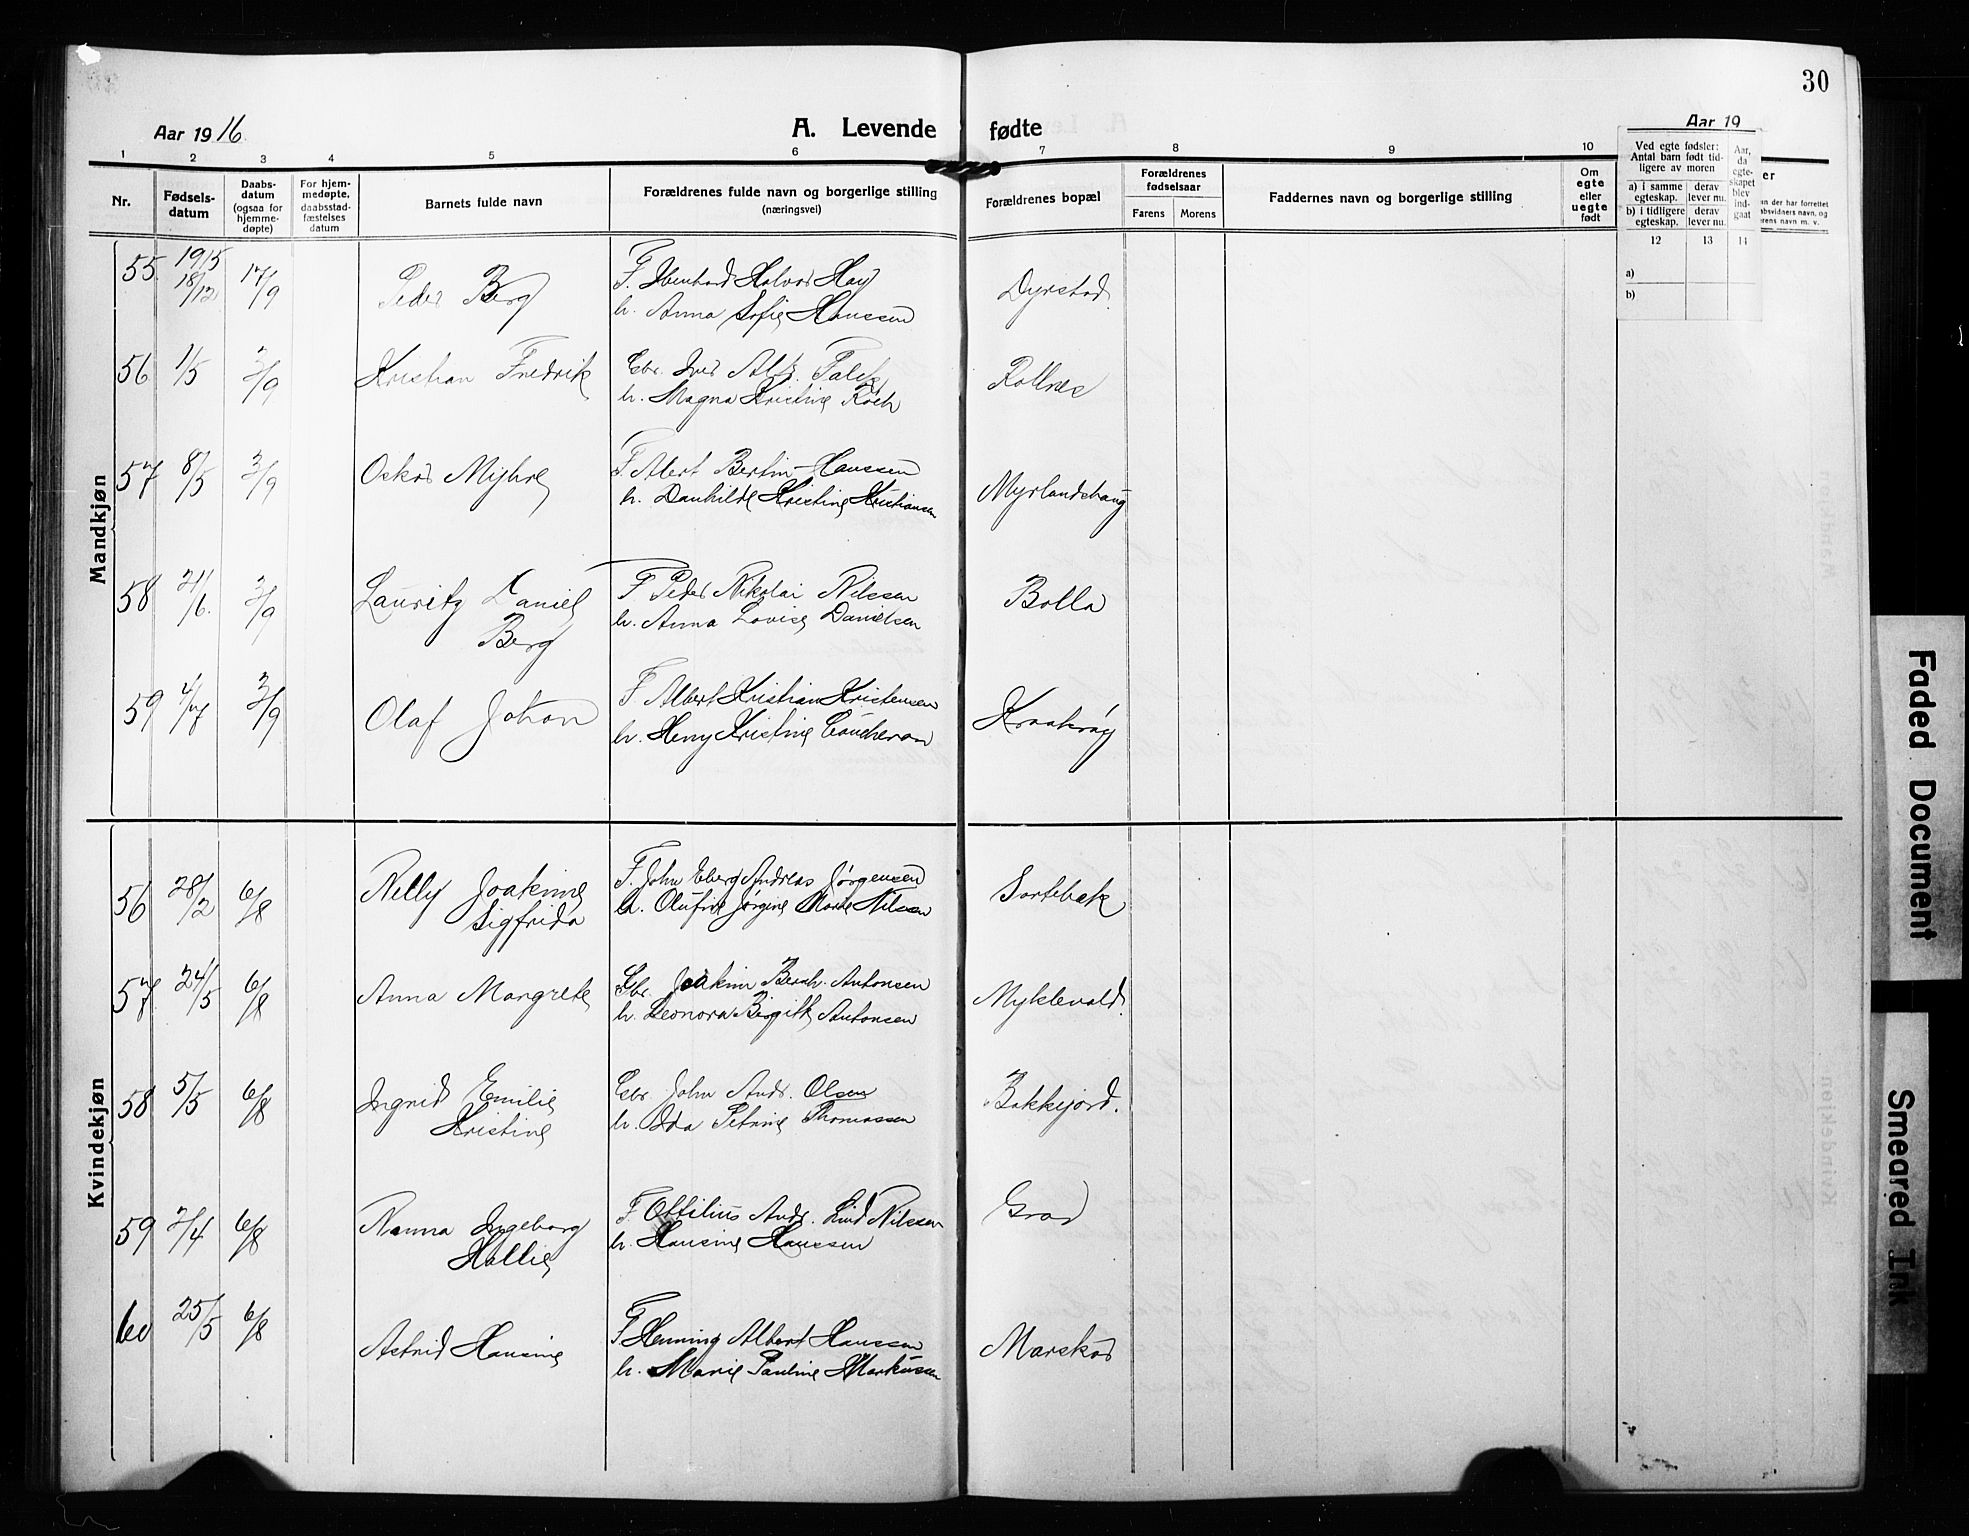 30
Aar 1916.
A. Levende fødte
Aar 19
1 2 3 4 5 6 7 8 9 10
Nr.
Fødsels-
datum
Daabs-
datum
(ogsaa for
hjemme-
døpte)
For hjem-
medøpte,
daabsstad-
fæstelses
datum
Barnets fulde navn
Forældrenes fulde navn og borgerlige stilling
(næringsvei)
Forældrenes bopæl
Forældrenes
fødselsaar
Farens
Morens
Faddernes navn og borgerlige stilling
Om
egte
eller
uegte
født
Ved egte fødsler:
Antal barn født tid-
ligere av moren
a) i samme
egteskap.
derav
lever nu.
b) i tidligere
egteskap.
derav
lever nu.
Aar,
da
egte-
skapet
blev
ind-
gaat
12 13 14
a)
b)
Mandkjøn
55. 1915 18/12 17/9
Peder Berg
F. Ebenhard Halvor Hay
h. Anna Sofie Hanssen
Dyrstad.
56 1/5 3/9
Kristian Fredrik
Gbr. Iver Alb. Falck
h. Magna Kristine Koch
Rollnes
57 8/5 3/9
Oskar Myhre
F. Albert Bertin Hanssen
h. Danhilde Kristine Kristiansen
Myrlandshaug
58 21/6. 3/9
Lauritz Daniel
Berg
F Peder Nikolai Nilssen
h. Anna Lovise Danielsen
Bolla
59 4/7 3/9
Olaf Johan
F. Albert Kristian Kristensen
h. Heny Kristine Coucheron
Kraakrøy
Kvindekjøn
56 28/2 6/8
Nelly Joakime
Sigfrida
F. John Eberg Andreas Jørgensen
h. Olufine Jørgine Marie Nilsen
Sortebæk
57. 24/5 6/8
Anna Margrete
Gbr. Joakim Bernh. Antonsen
h. Leonora Birgitte Antonsen
Myklevold.
58 5/5 6/8
Ingrid Emilie
Kristine
Gbr. John Andr. Olsen
h. Ida Petrine Thomassen
Bakkejord.
59 2/4 6/8
Nanna Ingeborg
Hallie
F. Ottilius Andr. Lind Nilssen
h. Hansine Hanssen
Grov
60 25/5 6/8
Astrid Hansine
F Henning Albert Hanssen
h. Marie Pauline Markussen
Marskar
Faded Document
Smeared Ink